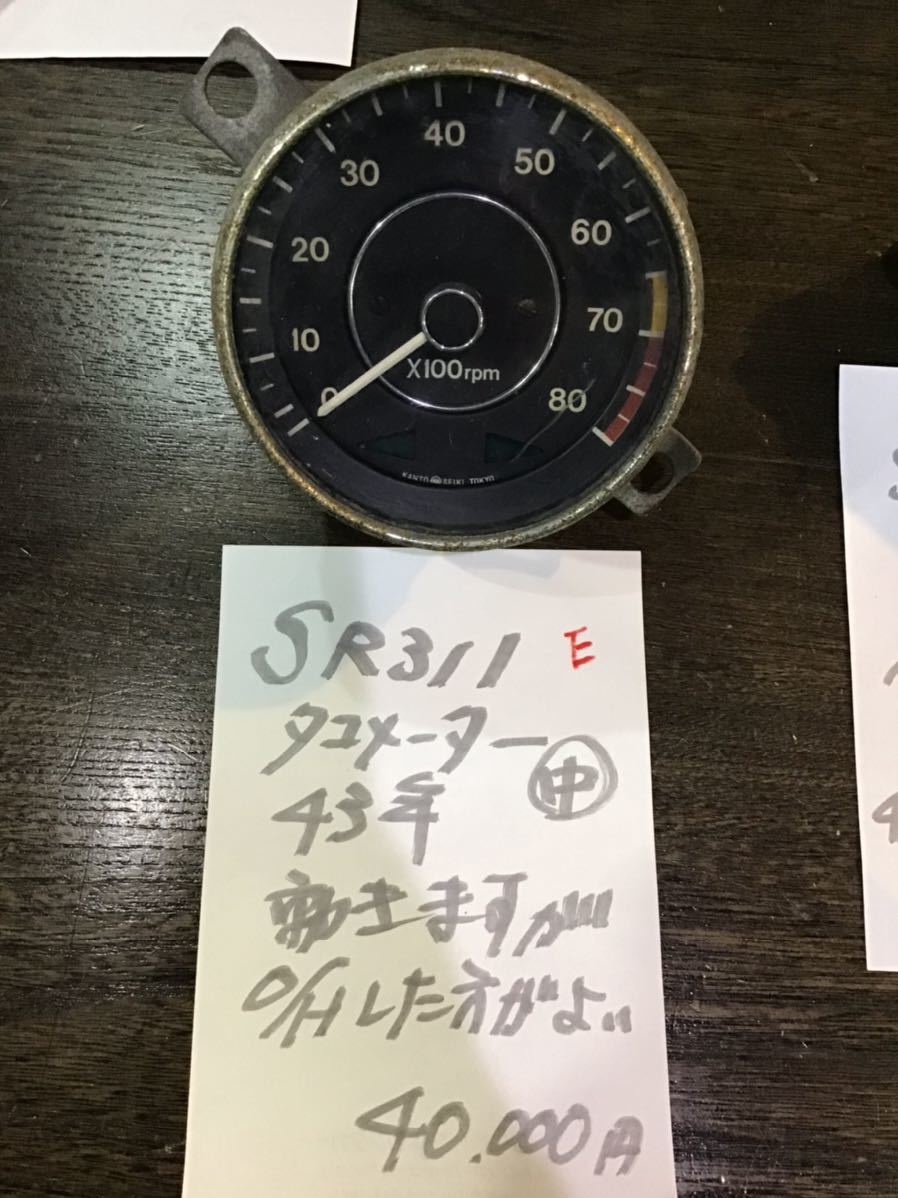 40
30
50
20
60
10
70
X100rpm
0
80
KANTO SEIKI TOKYO
SR311 E
タコメーター
中
43年
動きますが
O/Hした方がよい
40.000円